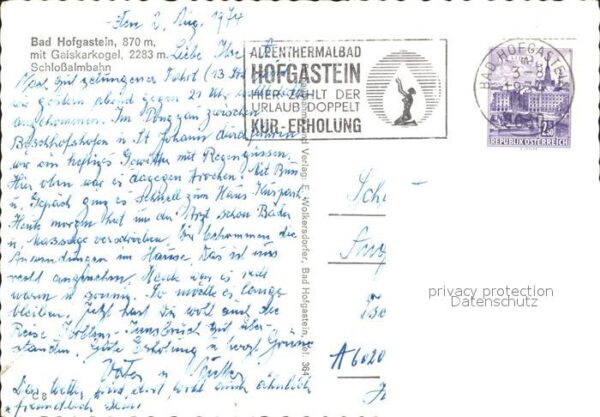 den 2. Aug. 1974
Bad Hofgastein, 870 m,
mit Gaiskarkogel, 2283 m
Schloßalmbahn
Liebe
Nach gut gelungener Fahrt (13 Std
wir gestern abend gegen 21 Uhr
angekommen. Im Pongau zwischen
Bischofshofen u. St Johann durchfuhren
wir ein heftiges Gewitter mit Regengüssen.
Hier oben war es dagegen trocken. Mit Bus
u. Gepäck ging es schnell zum Haus
Heute morgen hat uns der Arzt schon Bäder
u. Massage verschrieben. Wir bekommen die
Anwendungen im Hause. Das ist uns
recht angenehm. Heute war es recht
warm u. sonnig. So möchte es lange
bleiben. Jetzt hast Du wohl auch die
Reise Koblenz - Innsbruck gut über-
standen. Gute Erholung u. herzl. Grüße
Vater u. Mutter
Das Wetter wird dort wohl auch ähnlich
freundlich sein.
ALPENTHERMALBAD
HOFGASTEIN
HIER ZÄHLT DER
URLAUB DOPPELT
KUR-ERHOLUNG
BAD HOFGASTEIN
REPUBLIK ÖSTERREICH
Verlag: E. Wolkersdorfer, Bad Hofgastein, Tel. 364
A 6020
privacy protection
Datenschutz